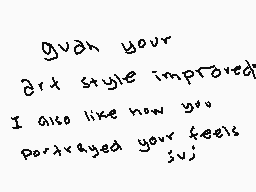 guah your
art style improved
I also like how you
portrayed your feels
;u;